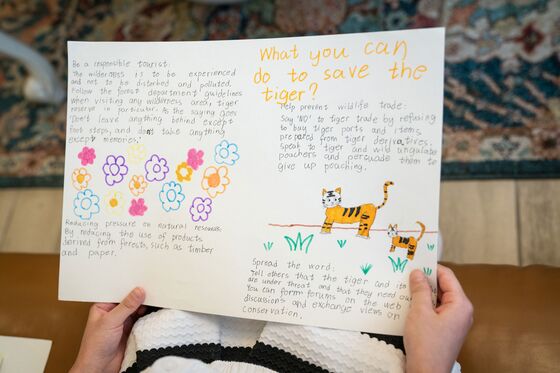 Be a responsible tourist:
The wilderness is to be experienced
and not to be disturbed and polluted.
Follow the forest department guidelines
when visiting any wilderness area, tiger
reserve in particular. As the saying goes
"Don't leave anything behind except
foot steps, and don't take anything
except memories.
Reducing pressure on natural resources:
By reducing the use of products
derived from forests, such as timber
and paper.
What you can
do to save the
tiger?
Help prevent wildlife trade:
Say 'NO' to tiger trade by refusing
to buy tiger parts and items
prepared from tiger derivatives.
speak to tiger and wild ungulates
poachers and persuade them to
give up poaching.
Spread the word:
Tell others that the tiger and its
are under threat and that they need our
You can form forums on the web
discussions and exchange views on
conservation.